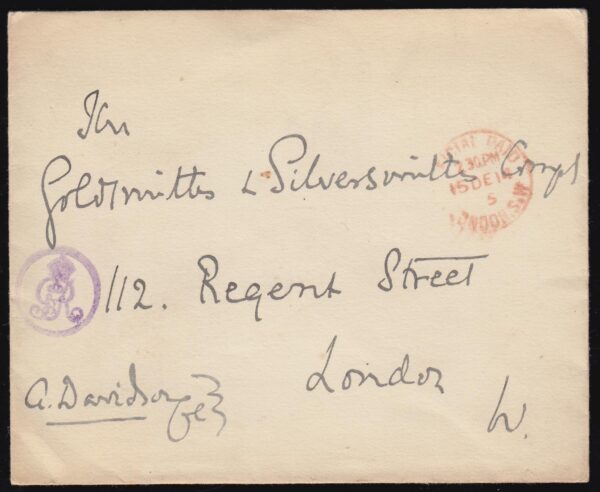 The
Goldsmiths & Silversmiths Compy
112. Regent Street
London
W.
A. Davidson
OFFICIAL PAID
.30PM
15 DE 14
S
LONDON. S.W
GR